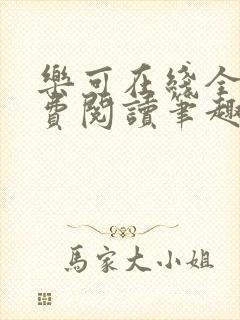 樂可在綫全
費閱讀筆趣
馬家大小姐